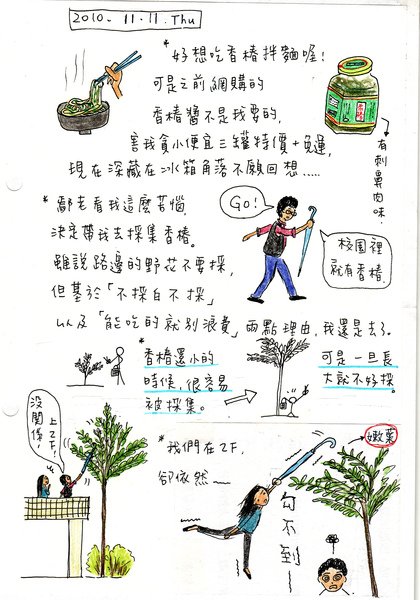 2010. 11. 11. Thu
*好想吃香椿拌麵喔!
可是之前網購的
香椿醬不是我要的,
害我貪小便宜三罐特價+免運,
現在深藏在冰箱角落不願回想.....
有刺鼻肉味.
*鄰老看我這麼苦惱,
決定帶我去採集香椿。
雖說路邊的野花不要採,
但基於「不採白不採」
以及「能吃的就別浪費」兩點理由,我還是去了.
GO!
校園裡
就有香椿.
香椿還小的
時候,很容易
被採集。
可是一旦長
大就不好採.
沒關係!
上2F!
*我們在2F,
卻依然~~
勾不到~
嫩葉